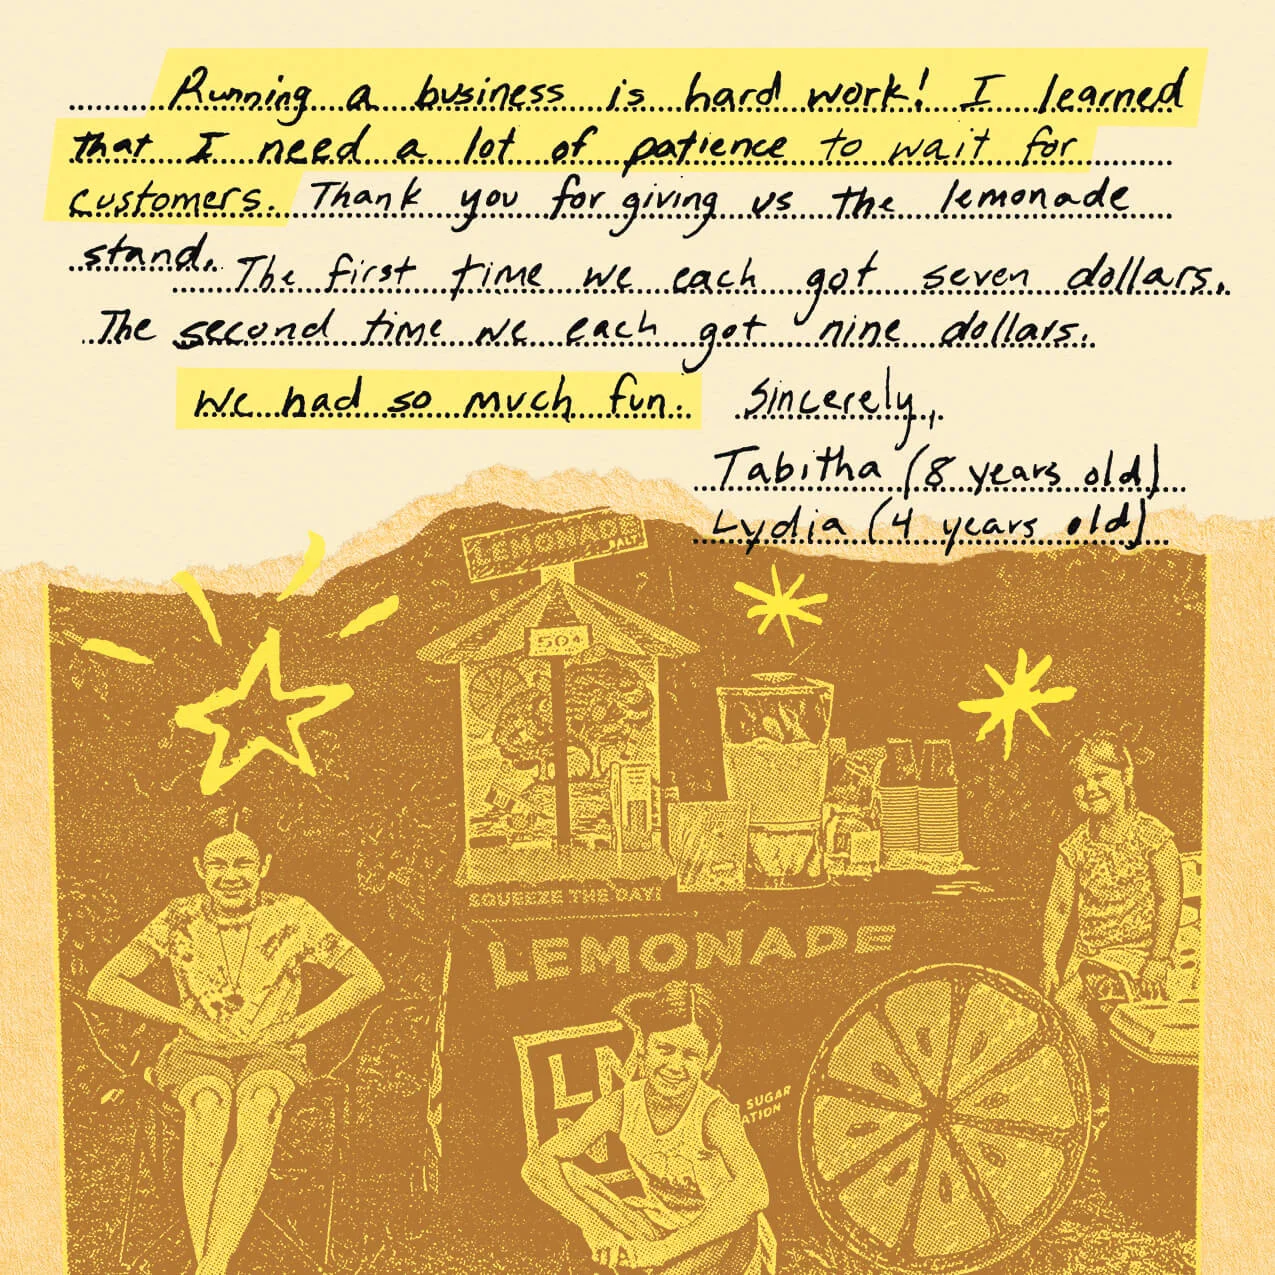 Running a business is hard work! I learned
that I need a lot of patience to wait for
customers. Thank you for giving us the lemonade
stand.
The first time we each got seven dollars.
The second time we each got nine dollars.
We had so much fun. Sincerely,
Tabitha (8 years old)
Lydia (4 years old)
LEMONADE
50¢
SQUEEZE THE DAY!
LEMONADE
SUGAR